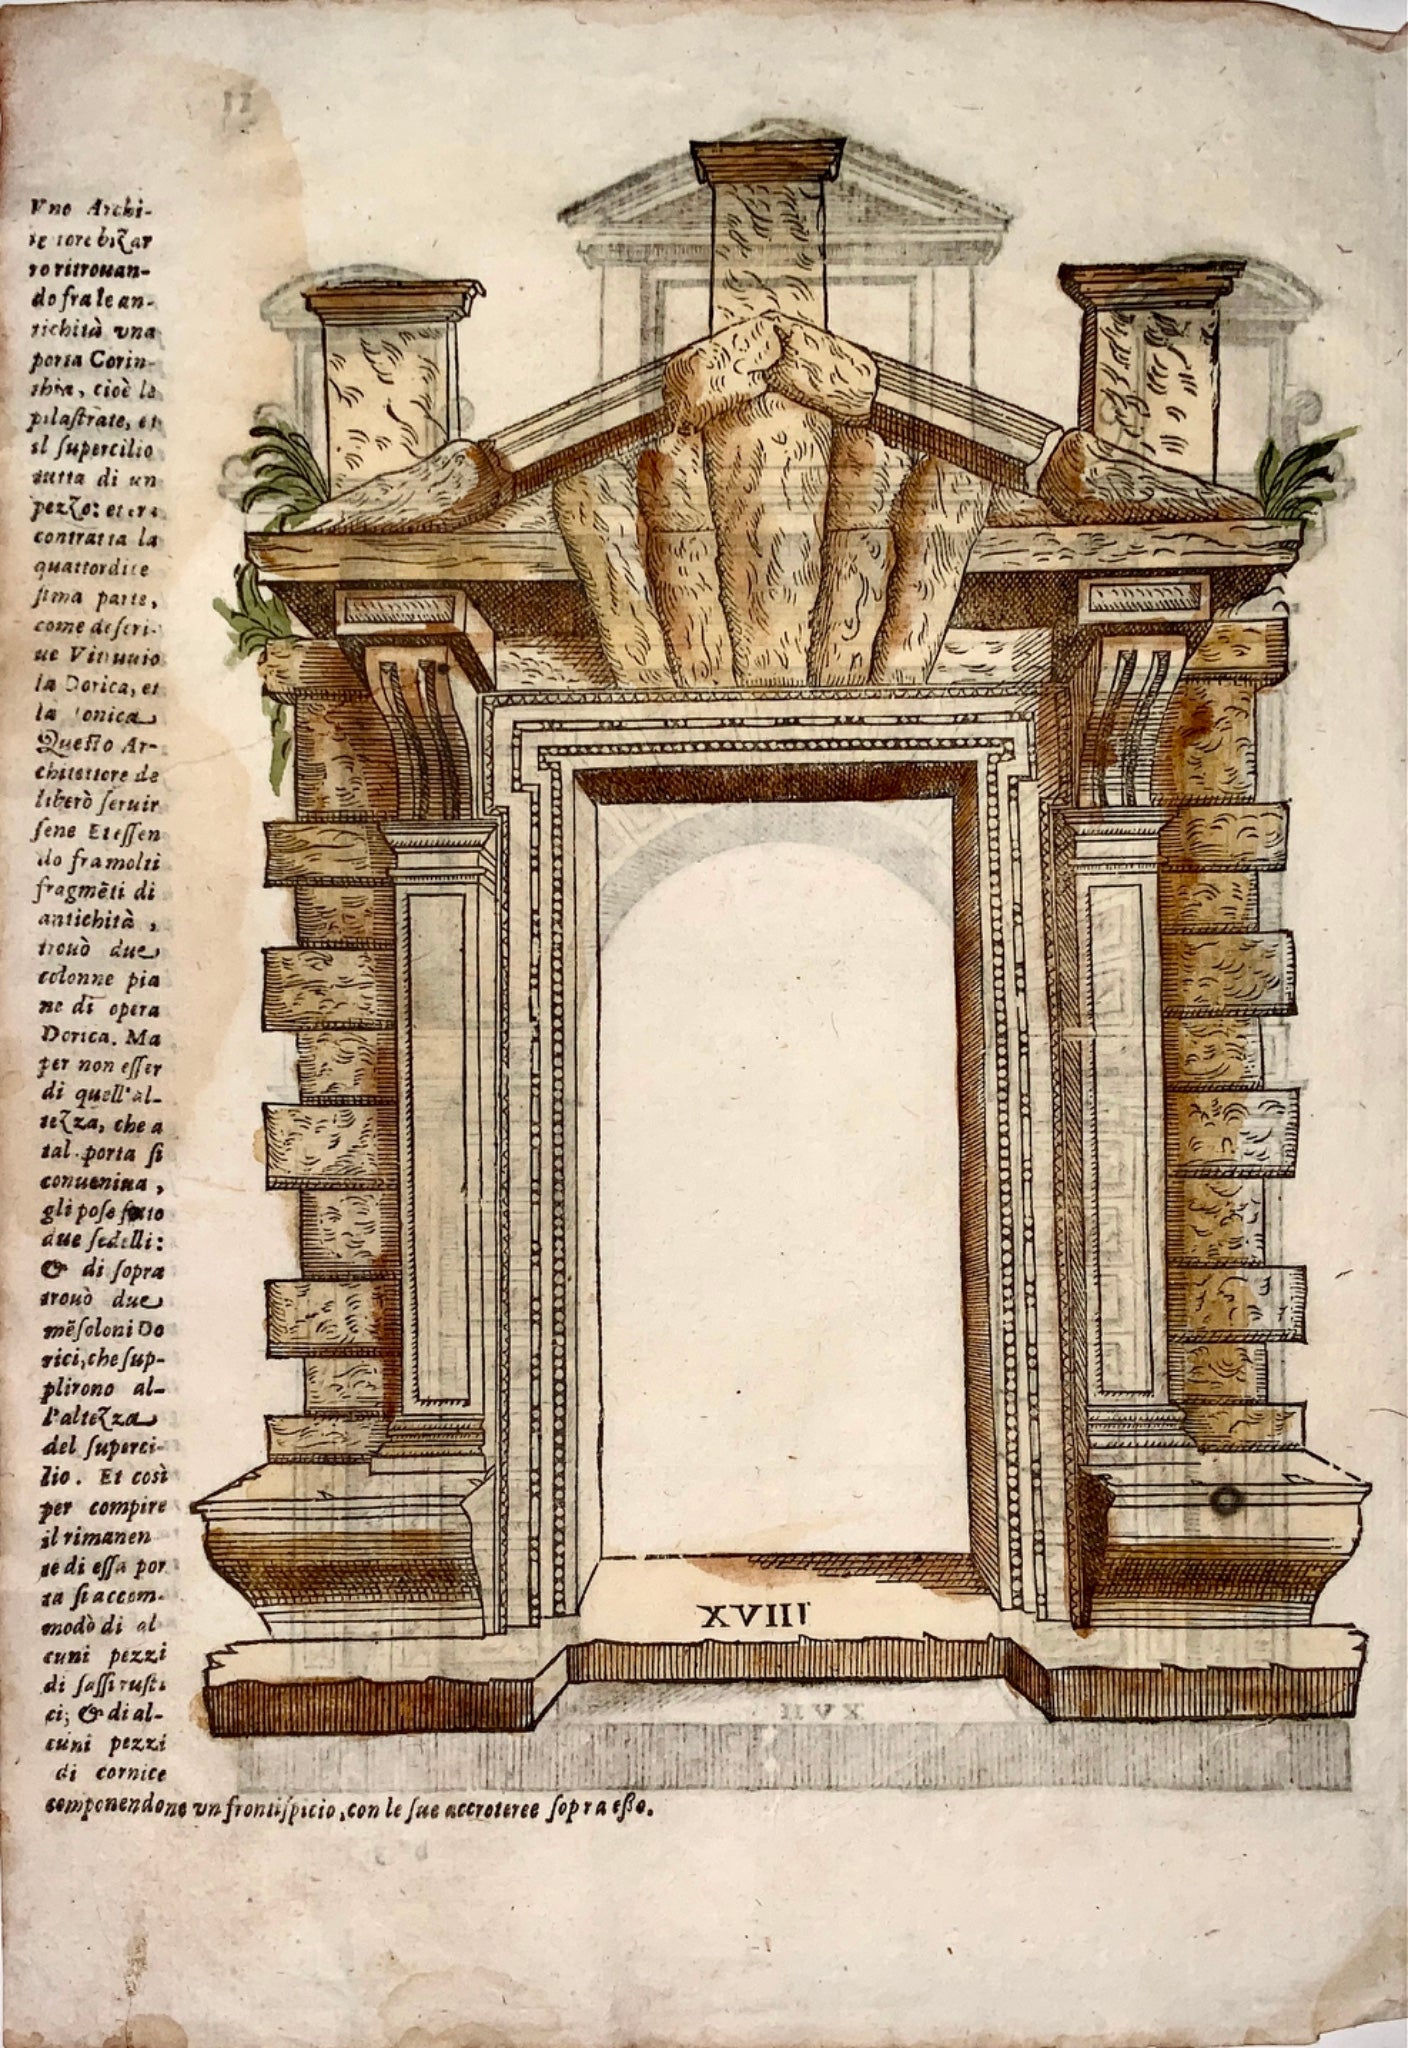 Vno Archi-
te tore bizar
ro ritrouan-
do fra le an-
tichità vna
porta Corin-
thia, cioè le
pilastrate, et
il supercilio
tutta di un
pezzo: et era
contratta la
quattordice
sima parte,
come descri-
ue Vitruuio
la Dorica, et
la Ionica
Questo Ar-
chitettore de
liberò seruir
sene Et essen
do fra molti
fragmēti di
antichità,
trouò due
colonne pia
ne di opera
Dorica. Ma
per non esser
di quell'al-
tezza, che a
tal porta si
conueniua,
gli pose sotto
due sedelli:
& di sopra
trouò due
mēsoloni Do
rici, che sup-
plirono al-
l'altezza
del superci-
lio. Et così
per compire
il rimanen
te di essa por
ta si accom-
modò di al
cuni pezzi
di sassi rusti
ci; & di al-
cuni pezzi
di cornice
componendone vn frontispicio, con le sue accroteree sopra esso.
XVIIII